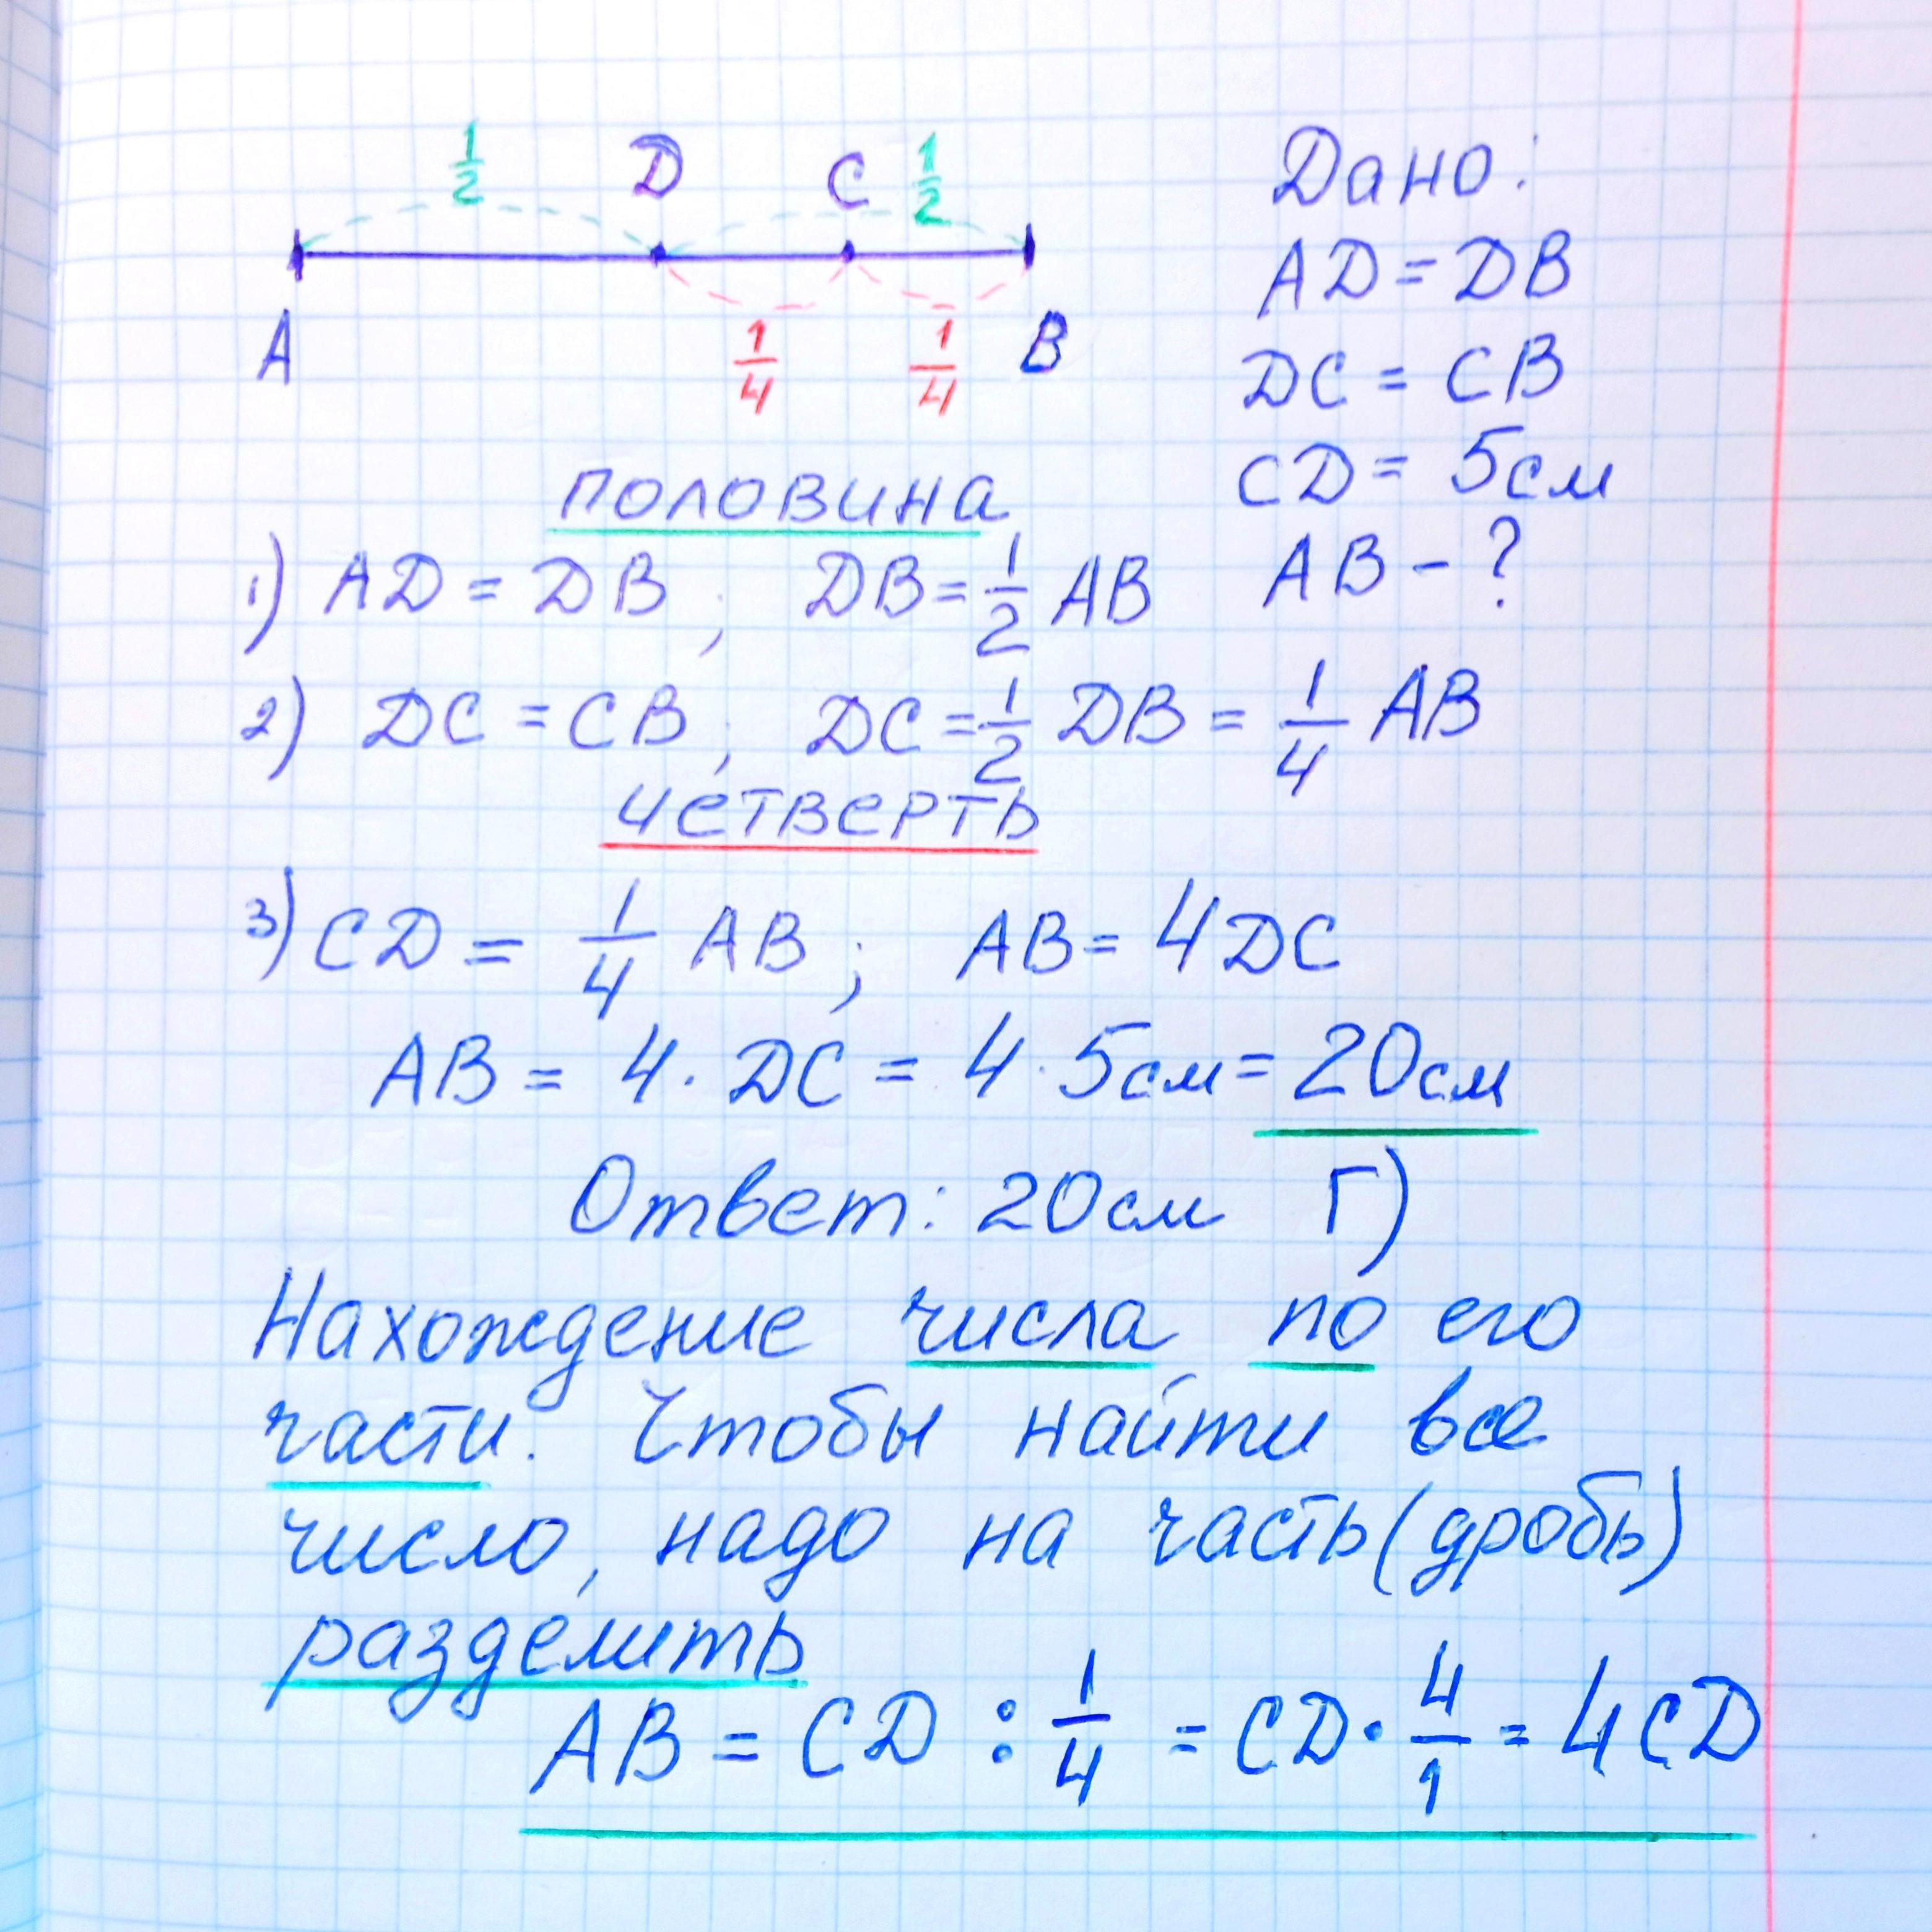 1/2 D C 1/2
A 1/4 1/4 B
Дано:
AD = DB
DC = CB
CD = 5см
AB - ?
половина
1) AD = DB; DB = 1/2 AB
2) DC = CB; DC = 1/2 DB = 1/4 AB
четверть
3) CD = 1/4 AB; AB = 4DC
AB = 4 · DC = 4 · 5см = 20см
Ответ: 20см Г)
Нахождение числа по его
части. Чтобы найти все
число, надо на часть (дробь)
разделить
AB = CD : 1/4 = CD · 4/1 = 4CD